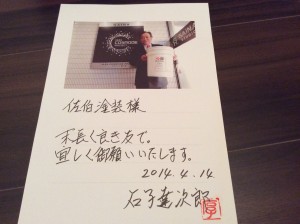 佐伯塗装様
末長く良き友で。
宜しく御願いいたします。
2014.4.14
石子達次郎